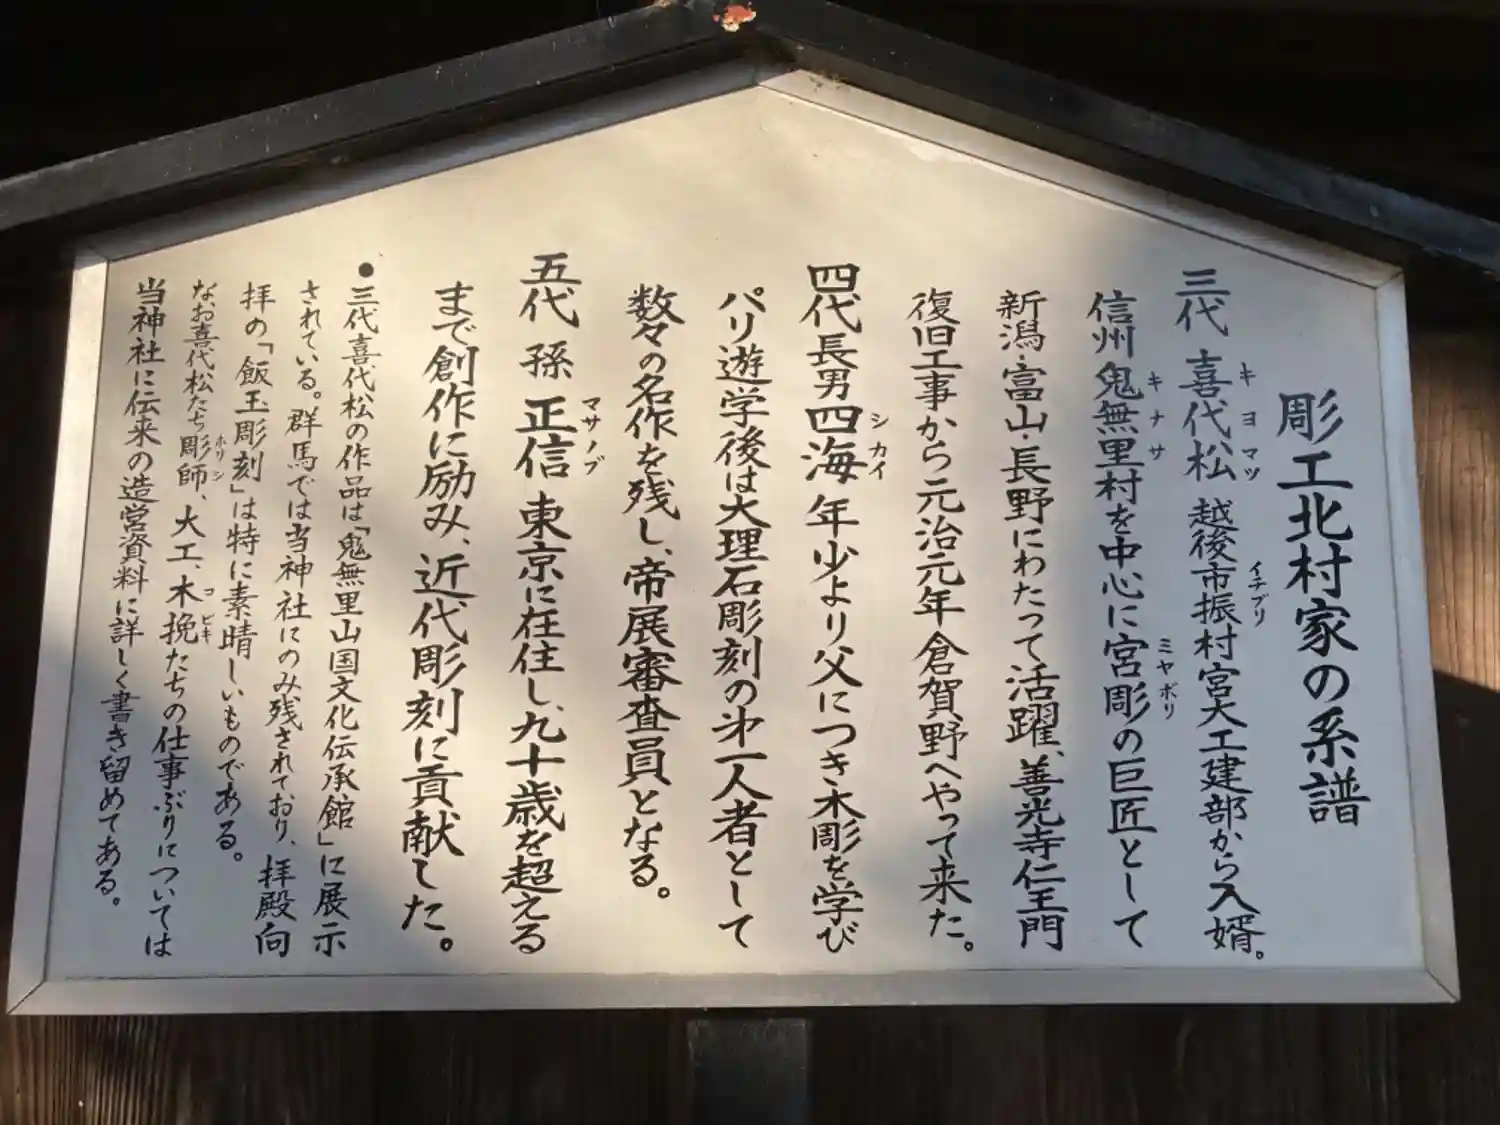 彫工北村家の系譜
三代 喜代松 越後市振村宮大工建部から入婿。
キヨマツ
イチブリ
信州鬼無里村を中心に宮彫の巨匠として
キナサ
ミヤボリ
新潟・富山・長野にわたって活躍、善光寺仁王門
復旧工事から元治元年倉賀野へやって来た。
四代長男四海 年少より父につき木彫を学び
シカイ
パリ遊学後は大理石彫刻の㐧一人者として
数々の名作を残し、帝展審査員となる。
五代 孫 正信 東京に在住し、九十歳を超える
マサノブ
まで創作に励み、近代彫刻に貢献した。
●三代喜代松の作品は「鬼無里山国文化伝承館」に展示
されている。群馬では当神社にのみ残されており、拝殿向
拝の「飯玉彫刻」は特に素晴しいものである。
なお喜代松たち彫師、大工、木挽たちの仕事ぶりについては
ホリシ
コビキ
当神社に伝来の造営資料に詳しく書き留めてある。